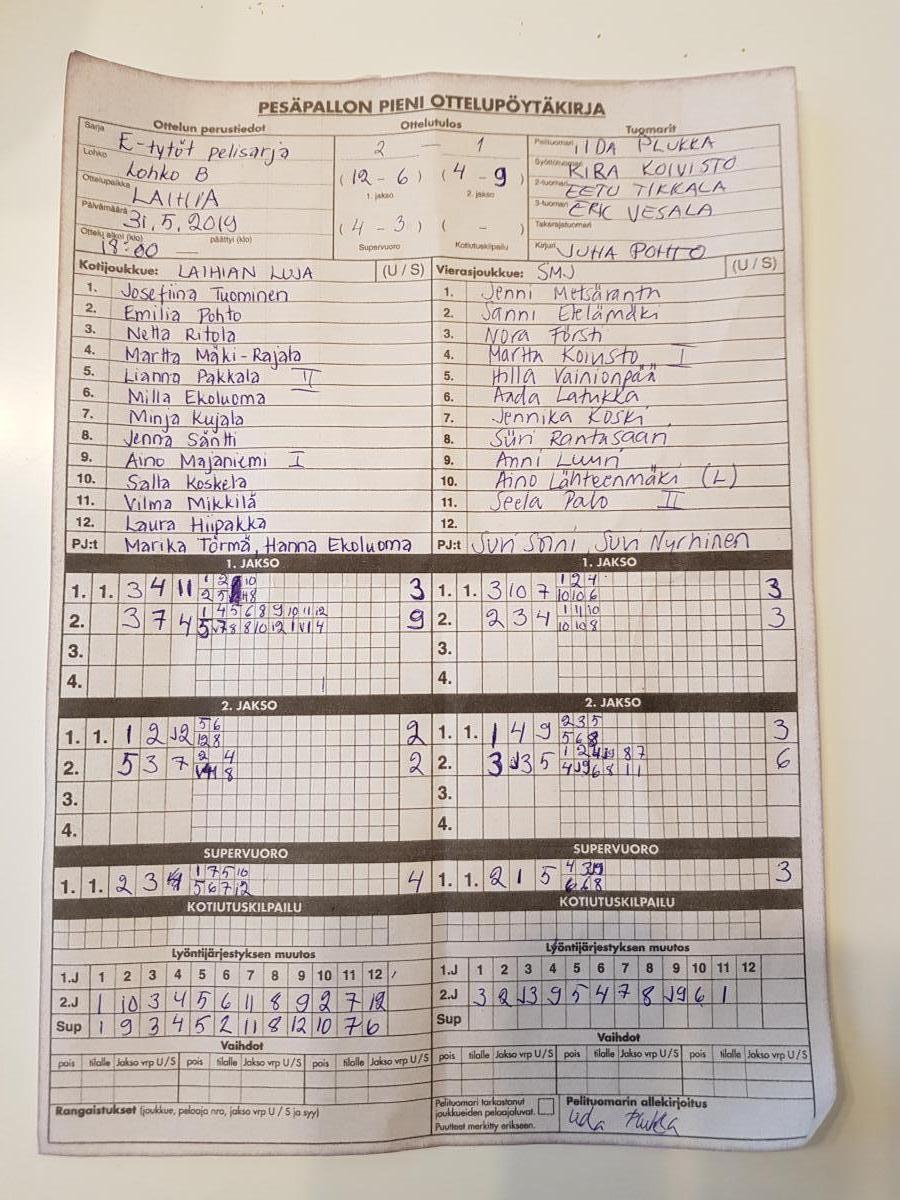 PESÄPALLON PIENI OTTELUPÖYTÄKIRJA
Ottelun perustiedot Ottelutulos Tuomarit
Sarja E-tytöt pelisarja
Lohko Lohko B
Ottelupaikka LAIHIA
Päivämäärä 31.5.2019
Ottelu alkoi (klo) 18:00 — päättyi (klo)
2 — 1
(12 - 6) (4 - 9)
1. jakso 2. jakso
(4 - 3) ( - )
Supervuoro Kotiutuskilpailu
Pelituomari IIDA PLUKKA
Syöttötuomari KIRA KOIVISTO
2-tuomari EETU TIKKALA
3-tuomari ERIC VESALA
Takarajatuomari
Kirjuri JUHA POHTO
Kotijoukkue: LAIHIAN LUJA (U / S)
1. Josefiina Tuominen
2. Emilia Pohto
3. Netta Ritola
4. Martta Mäki-Rajala
5. Lianna Pakkala II
6. Milla Ekoluoma
7. Minja Kujala
8. Jenna Säntti
9. Aino Majaniemi I
10. Salla Koskela
11. Vilma Mikkilä
12. Laura Hiipakka
PJ:t Marika Törmä, Hanna Ekoluoma
Vierasjoukkue: SMJ (U / S)
1. Jenni Metsäranta
2. Sanni Etelämäki
3. Nora Försti
4. Martta Koivisto I
5. Hilla Vainionpää
6. Aada Latukka
7. Jennika Koski
8. Siiri Rantasaari
9. Anni Luuri
10. Aino Lähteenmäki (L)
11. Seela Palo II
12.
PJ:t Suvi Nyrhinen
1. JAKSO 1. JAKSO
1. 1. 3 4 11 3 1. 1. 3 10 7 1 2 4 3
10 10 6
2. 3 7 4 1 4 5 6 8 9 10 11 12 9 2. 2 3 4 1 11 10 3
10 10 8
3. 3.
4. 4.
2. JAKSO 2. JAKSO
1. 1. 1 2 12 5 6 2 1. 1. 1 4 9 2 3 5 3
12 8 5 6 8
2. 5 3 7 2 4 2 2. 3 5 6
3. 3.
4. 4.
SUPERVUORO SUPERVUORO
1. 1. 2 3 1 7 5 10 4 1. 1. 2 1 5 3
5 6 7 12 6 6 8
KOTIUTUSKILPAILU KOTIUTUSKILPAILU
Lyöntijärjestyksen muutos
1.J 1 2 3 4 5 6 7 8 9 10 11 12
2.J 1 10 3 4 5 6 11 8 9 2 7 12
Sup 1 9 3 4 5 2 11 8 12 10 7 6
Lyöntijärjestyksen muutos
1.J 1 2 3 4 5 6 7 8 9 10 11 12
2.J 3 2 J3 9 5 4 7 8 J9 6 1
Sup
Vaihdot Vaihdot
pois tilalle Jakso vrp U/S pois tilalle Jakso vrp U/S pois tilalle Jakso vrp U/S pois tilalle Jakso vrp U/S pois tilalle Jakso vrp U/S pois tilalle Jakso vrp U/S
Rangaistukset (joukkue, pelaaja nro, jakso vrp U / S ja syy)
Pelituomari tarkastanut
joukkueiden pelaajaluvat.
Puutteet merkitty erikseen.
Pelituomarin allekirjoitus
Iida Plukka